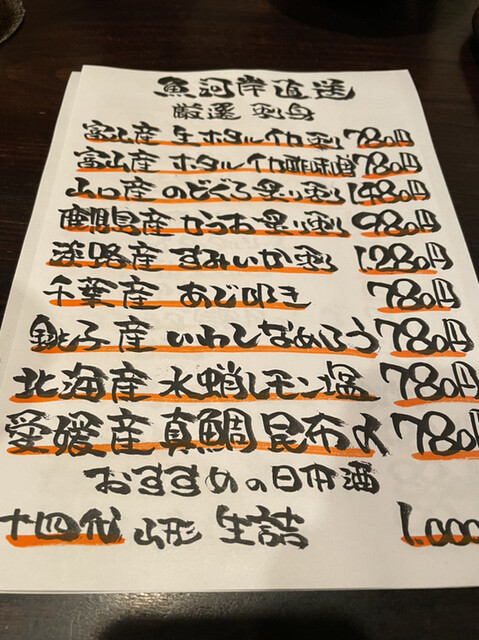 魚河岸直送
厳選 刺身
富山産 生ホタルイカ刺 780円
富山産 ホタルイカ酢味噌 780円
山口産 のどぐろ炙り刺 1,480円
鹿児島産 かつお炙り刺 980円
淡路産 すみいか刺 1,280円
千葉産 あじ叩き 780円
銚子産 いわしなめろう 780円
北海産 水蛸レモン塩 780円
愛媛産 真鯛昆布〆 780円
おすすめの日本酒
十四代 山形 生詰 1,000